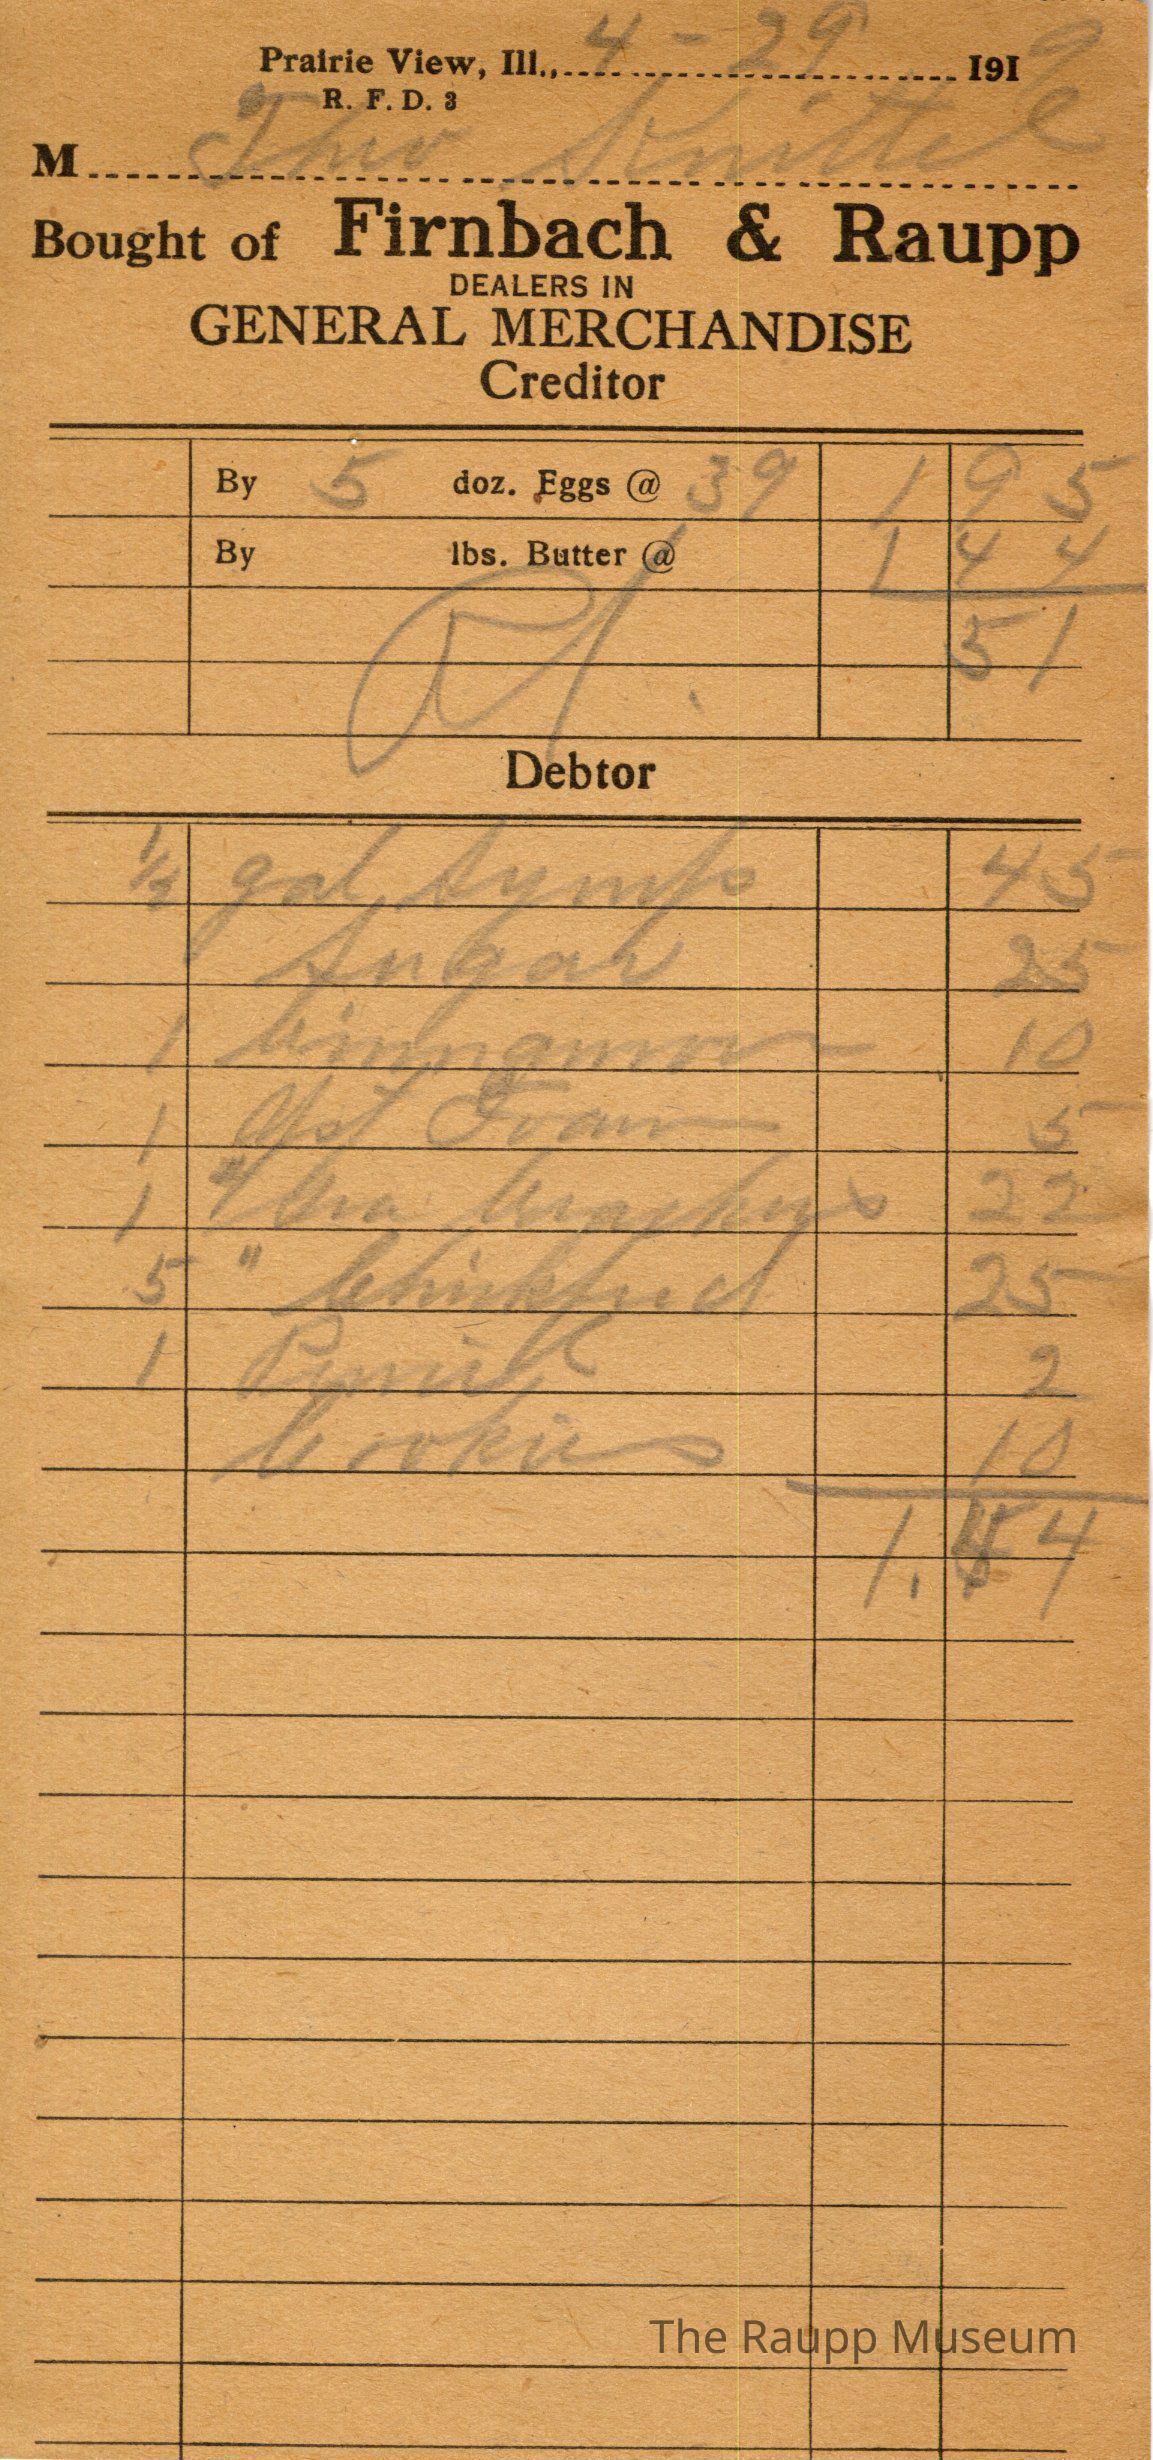 Prairie View, Ill., 4 - 29 1919
R. F. D. 3
M Theo Knittel
Bought of Firnbach & Raupp
DEALERS IN
GENERAL MERCHANDISE
Creditor
By 5 doz. Eggs @ 39 1 95
By lbs. Butter @ 1 44
51
Debtor
1/2 gal Syrup 45
Sugar 25
1 Cinngmon 10
1 Yst Foam 5
1 # Gra Crackers 22
5 " Chickfeed 25
1 2
Cookies 10
1.44
The Raupp Museum